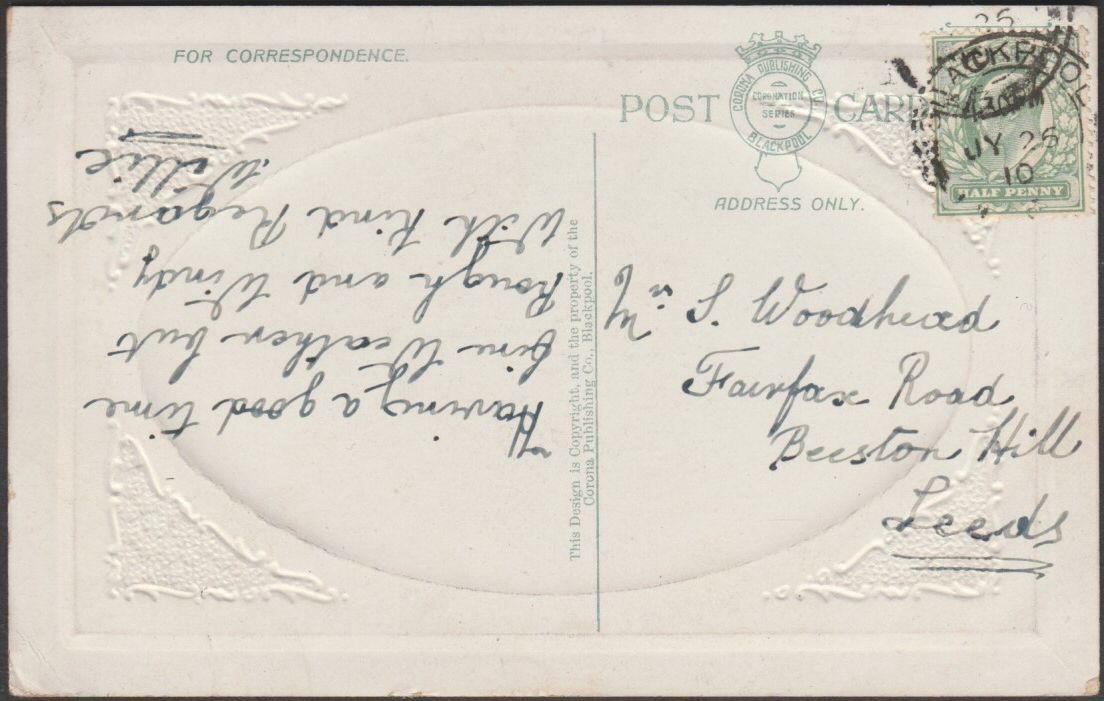 FOR CORRESPONDENCE.
Having a good time
fine Weather but
Rough and Windy
With Kind Regards
Willie
This Design is Copyright, and the property of the
Corona Publishing Co., Blackpool.
POST CARD
CORONA PUBLISHING CO.
CORONATION
SERIES
BLACKPOOL
ADDRESS ONLY.
BLACKPOOL
4.30PM
JY 26
10
HALF PENNY
S. Woodhead
Fairfax Road
Beeston Hill
Leeds